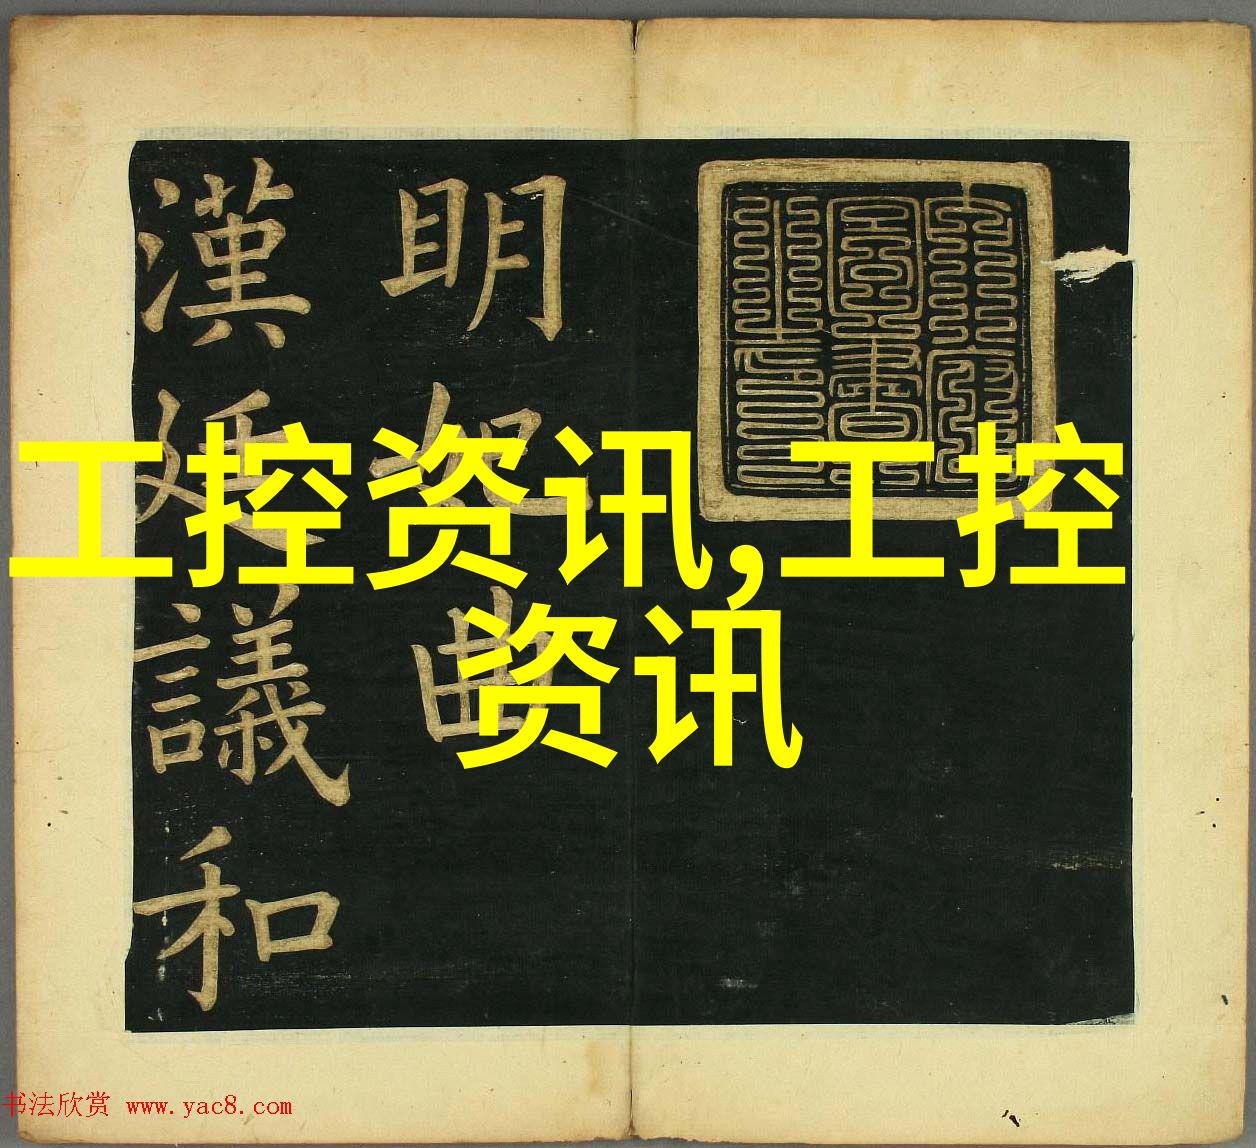 明妃曲
漢廷議和
工控资讯,工控
资讯
书法欣赏 www.yac8.com